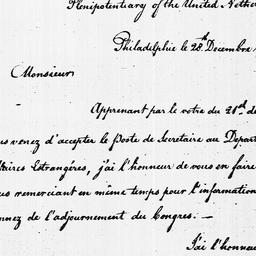 Plenipotentiary of the United Nethe
Philadelphie le 28th Decembre
Monsieur
Apprenant par le votre du 21st de
us venez d'accepter le Poste de Secretaire au Depart
ffaires Estrangéres, j'ai l'honneur de vous en faire
us remerciant en même temps pour l'information
nnez de l'adjournement du Congres. —
J'ai l'honneu